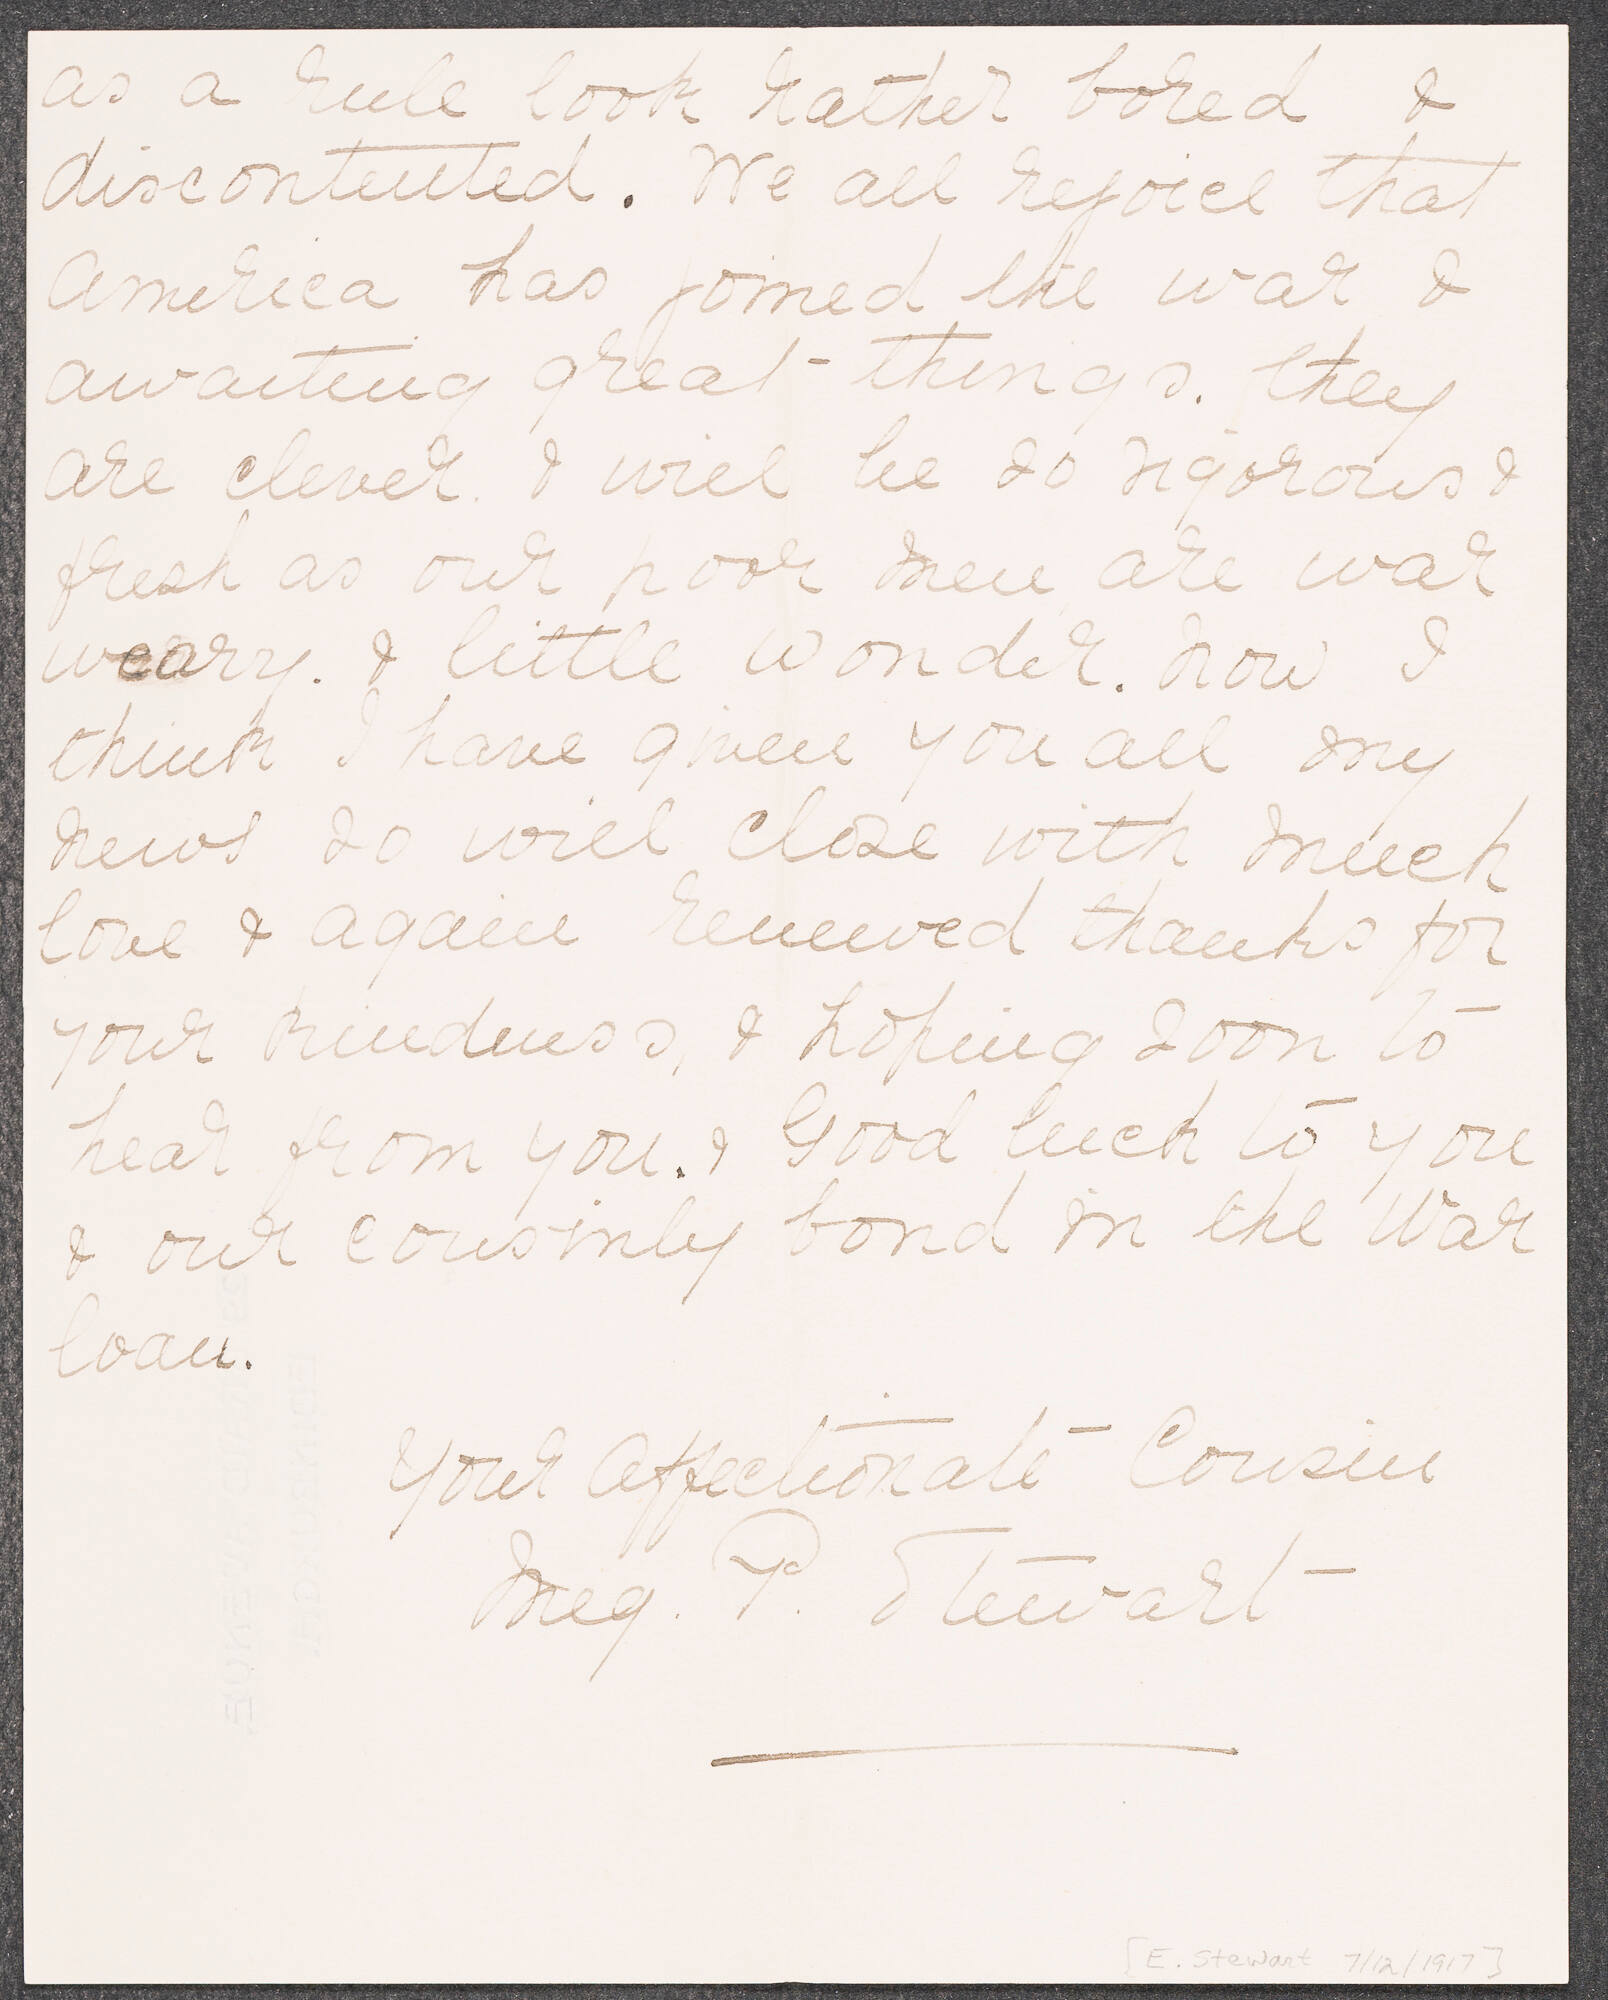 as a rule look rather bored &
discontented. We all rejoice that
America has joined the war &
awaiting great things. They
are clever. & will be so vigorous &
fresh as our poor men are war
weary. & little wonder. Now I
think I have given you all my
news so will close with much
love & again renewed thanks for
your kindness, & hoping soon to
hear from you. & Good luck to you
& our cousinly bond in the War
loan.
Your Affectionate Cousin
Meg. P. Stewart
[E. Stewart 7/12/1917]